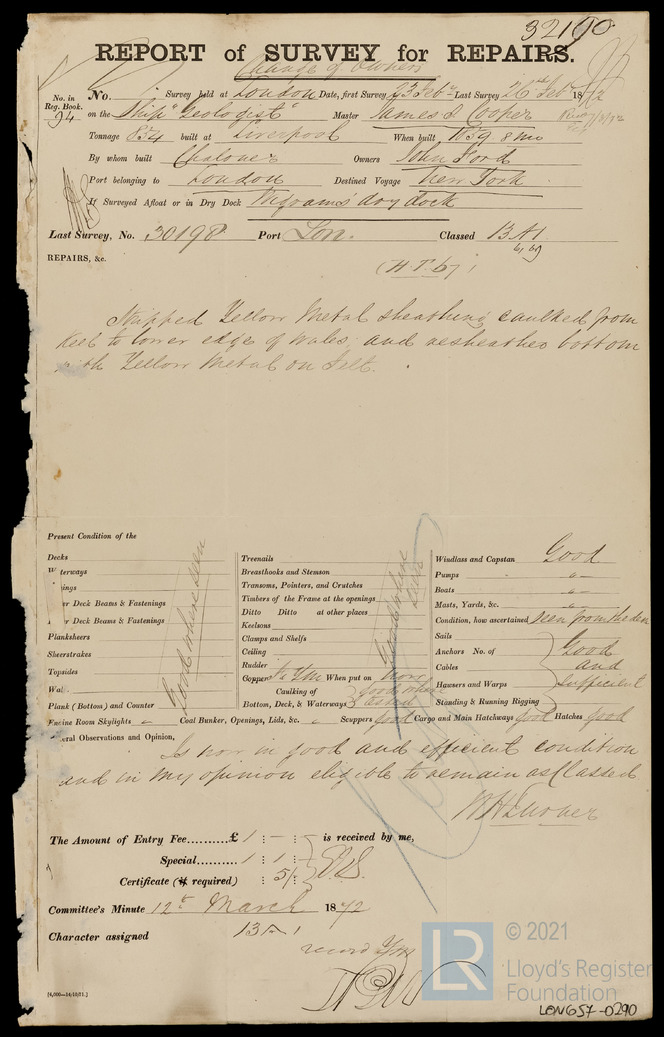 32190
REPORT of SURVEY for REPAIRS.
Change of Owners
No. in Reg. Book. 94
No. Survey held at London Date, first Survey 23 Feby Last Survey 26th Feby 1872
on the Ship "Geologist" Master James S Cooper
Tonnage 834 built at Liverpool When built 1859 8 mo
By whom built Chaloner Owners John Ford
Port belonging to London Destined Voyage New York
If Surveyed Afloat or in Dry Dock Wigrams' dry dock
Last Survey, No. 30198 Port Lon. Classed 13 A1
REPAIRS, &c.
Stripped Yellow Metal sheathing caulked from
Keel to lower edge of Wales, and resheathed bottom
with Yellow Metal on Felt.
Present Condition of the
Decks
Treenails
Windlass and Capstan Good
Breasthooks and Stemson
Pumps "
Transoms, Pointers, and Crutches
Boats "
Timbers of the Frame at the openings
Masts, Yards, &c. "
er Deck Beams & Fastenings
er Deck Beams & Fastenings
Good where seen
Ditto Ditto at other places
Good where seen
Condition, how ascertained seen from the deck
Planksheers
Keelsons
Sails
Sheerstrakes
Clamps and Shelfs
Anchors No. of Good
Topsides
Ceiling
Cables and
Rudder
Hawsers and Warps Sufficient
Copper Y M When put on now
Standing & Running Rigging
Plank (Bottom) and Counter
Caulking of Bottom, Deck, & Waterways good where
Engine Room Skylights Coal Bunker, Openings, Lids, &c. Scuppers good Cargo and Main Hatchways good Hatches good
eral Observations and Opinion,
Is now in good and efficient condition
and in my opinion eligible to remain as Classed
The Amount of Entry Fee..........£ 1 : – : is received by me,
Special.......... 1 : 1 :
Certificate (if required) : 5/-
Committee's Minute 12th March 1872
Character assigned 13 A 1
record YM
[4,000—14/10/71.]
LR © 2021
Lloyd's Register
Foundation
LON657-0290